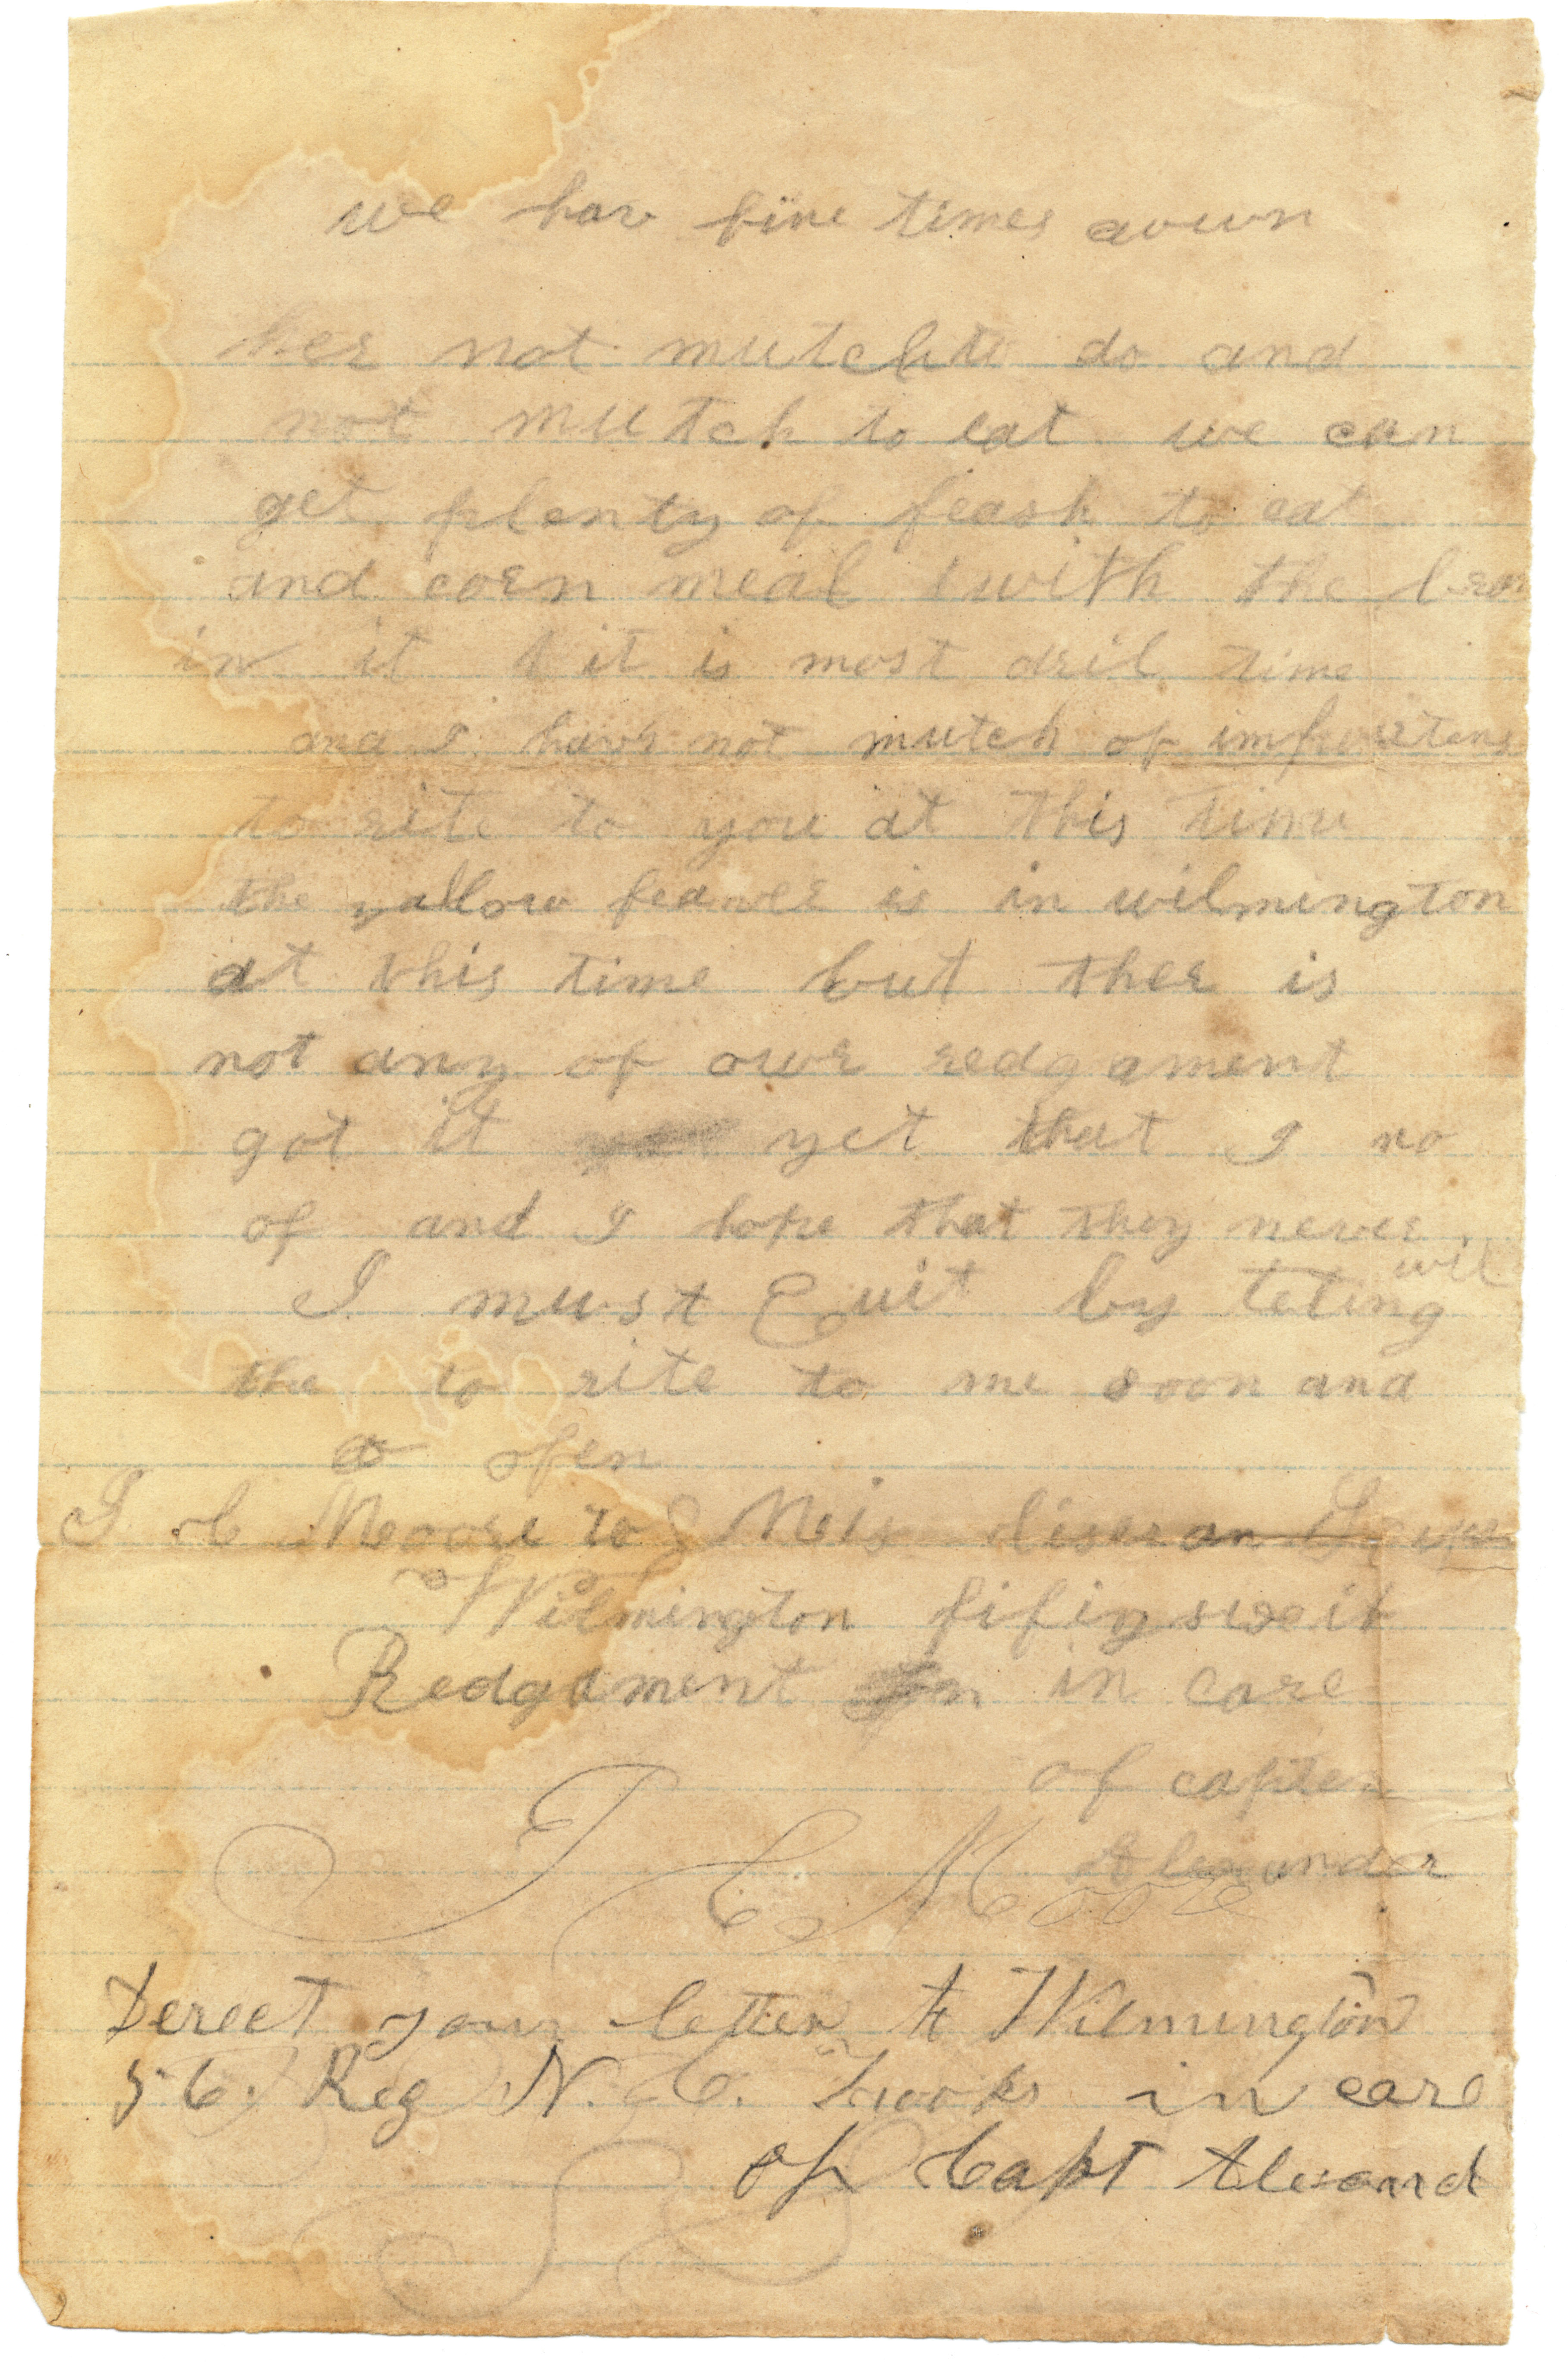 we hav fine times down
her not mutch to do and
not mutch to eat we can
get plenty of feash to eat
and corn meal with the bran
in it it is most dril time
and I have not mutch of importens
to rite to you at this time
the yallow feaver is in wilmington
at this time but ther is
not any of owr redgament
got it yet that I no
of and I hope that they never
wil
I must Quit by teling
the to rite to me soon and
ofen
Moore to
Wilmington
Redgament in care
of capten
Alexander
T C Moore
Derect your letter to Wilmington
56 Reg N. C. Troops in care
of Capt Alexand